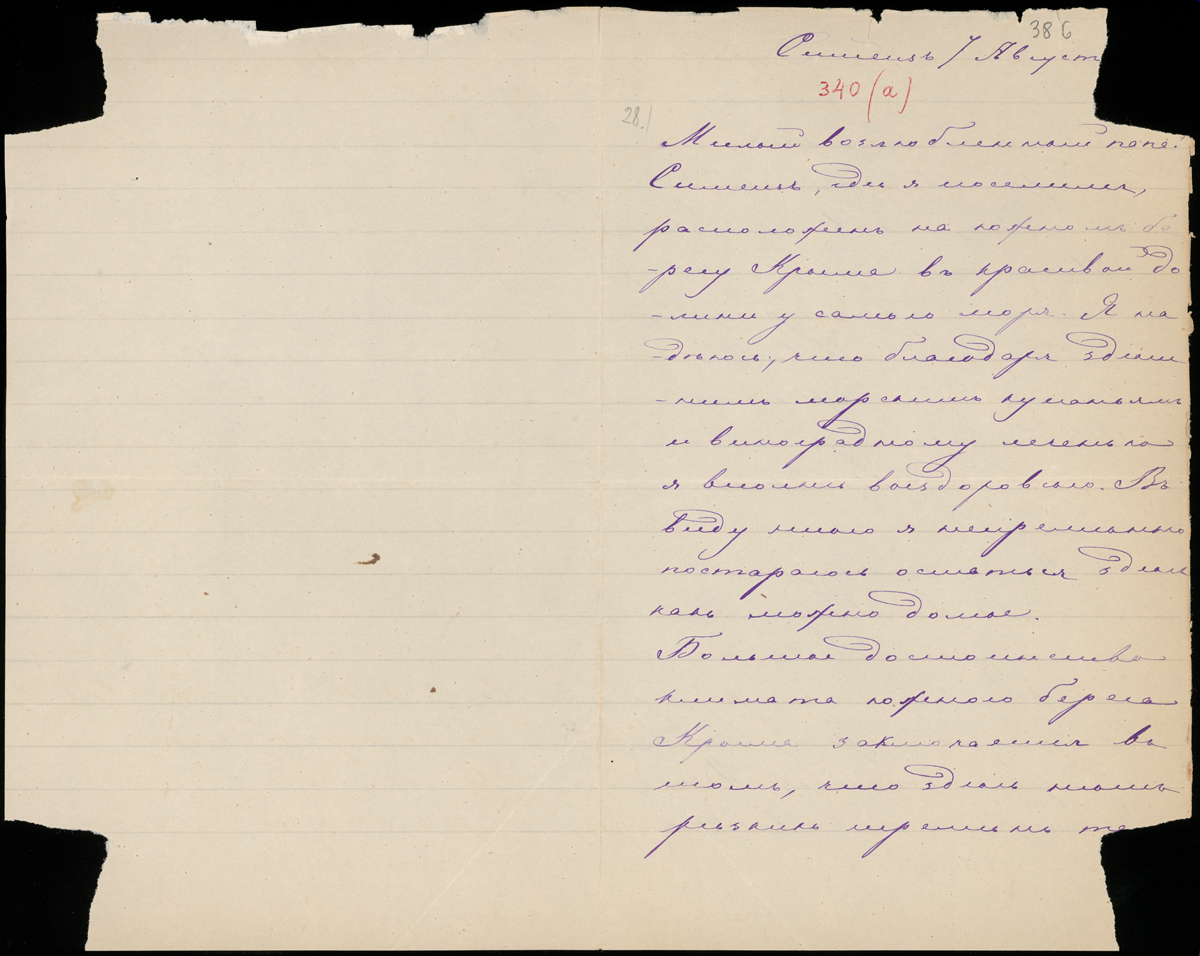 386
Симеизъ 7 Август
340 (а)
28.
Милый возлюбленный папа!
Симеизъ, гдѣ я поселился,
расположенъ на южномъ бе
-регу Крыма въ красивой до
-линѣ у самаго моря. Я на
-дѣюсь, что благодаря здѣш
-нимъ морскимъ купаньямъ
и виноградному леченью
я вполнѣ выздоровѣю. Въ
виду этого я непремѣнно
постараюсь остаться здѣсь
какъ можно долѣе.
Большое достоинство
климата южнаго берега
Крыма заключается въ
томъ, что здѣсь нѣтъ
рѣзкихъ перемѣнъ те